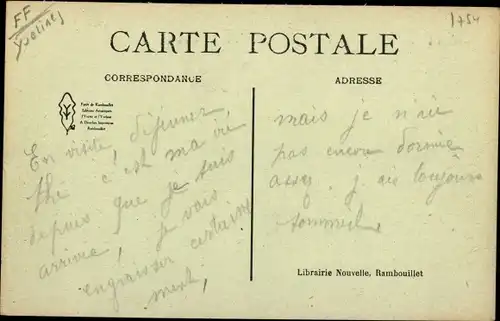 FF
Yvelines
1754
CARTE POSTALE
CORRESPONDANCE
ADRESSE
Forêt de Rambouillet
Rambouillet
En visite, déjeuner,
thé c'est ma vie
depuis que je suis
arrivée, je vais
engraisser certaine
ment,
mais je n'ai
pas encore dormi
assez, j'ai toujours
sommeil
Librairie Nouvelle, Rambouillet